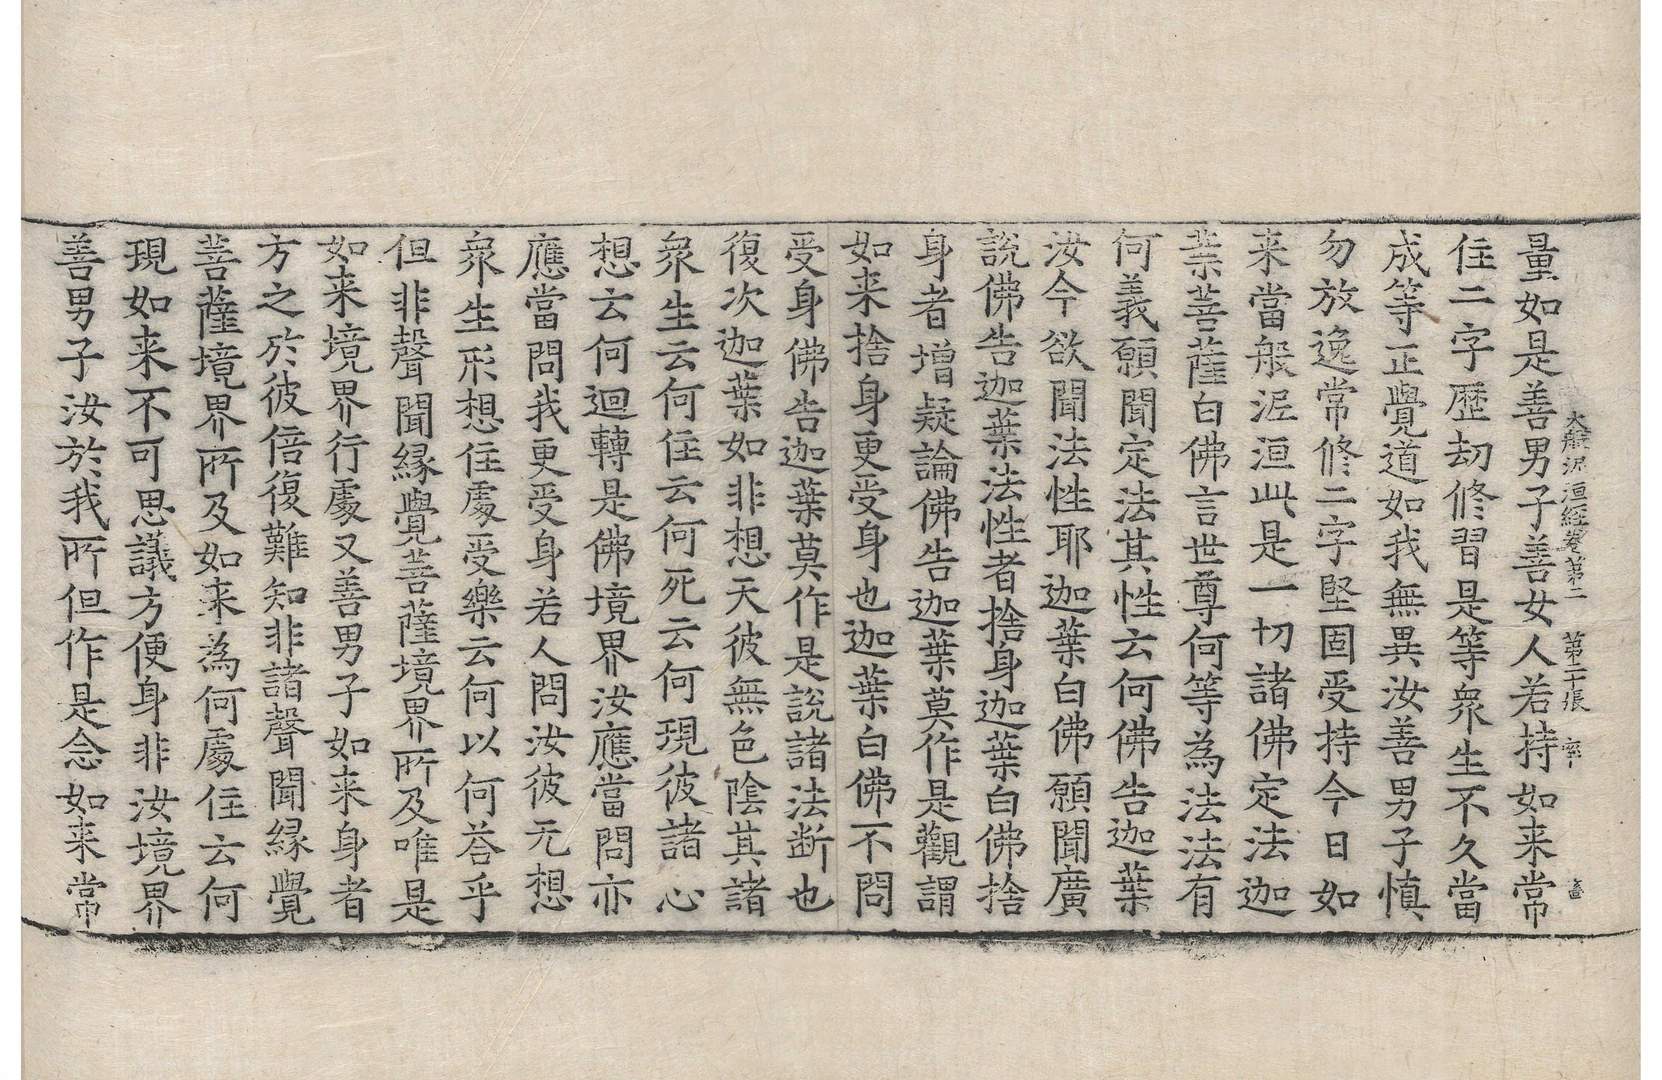 大般泥洹経卷第二 第二十張 宰
量如是善男子善女人若持如来常
住二字歷劫修習是等衆生不久當
成等正覺道如我無異汝善男子慎
勿放逸常修二字堅固受持今日如
来當般泥洹此是一切諸佛定法迦
葉菩薩白佛言世尊何等為法法有
何義願聞定法其性云何佛告迦葉
汝今欲聞法性耶迦葉白佛願聞廣
說佛告迦葉法性者捨身迦葉白佛捨
身者增疑論佛告迦葉莫作是觀謂
如来捨身更受身也迦葉白佛不問
受身佛告迦葉莫作是說諸法断也
復次迦葉如非想天彼無色陰其諸
衆生云何住云何死云何現彼諸心
想云何迴轉是佛境界汝應當問亦
應當問我更受身若人問汝彼无想
衆生形想住處受樂云何以何荅乎
但非聲聞緣覺菩薩境界所及唯是
如来境界行處又善男子如来身者
方之於彼倍復難知非諸聲聞緣覺
菩薩境界所及如来為何處住云何
現如来不可思議方便身非汝境界
善男子汝於我所但作是念如来常